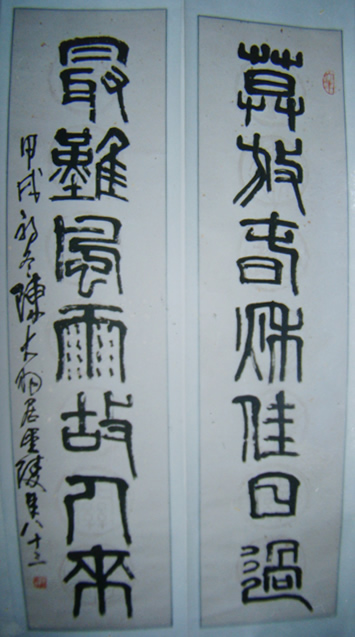 莫放春秋佳日過
最難風雨故人來
甲戌初冬陳大羽居金陵年八十三